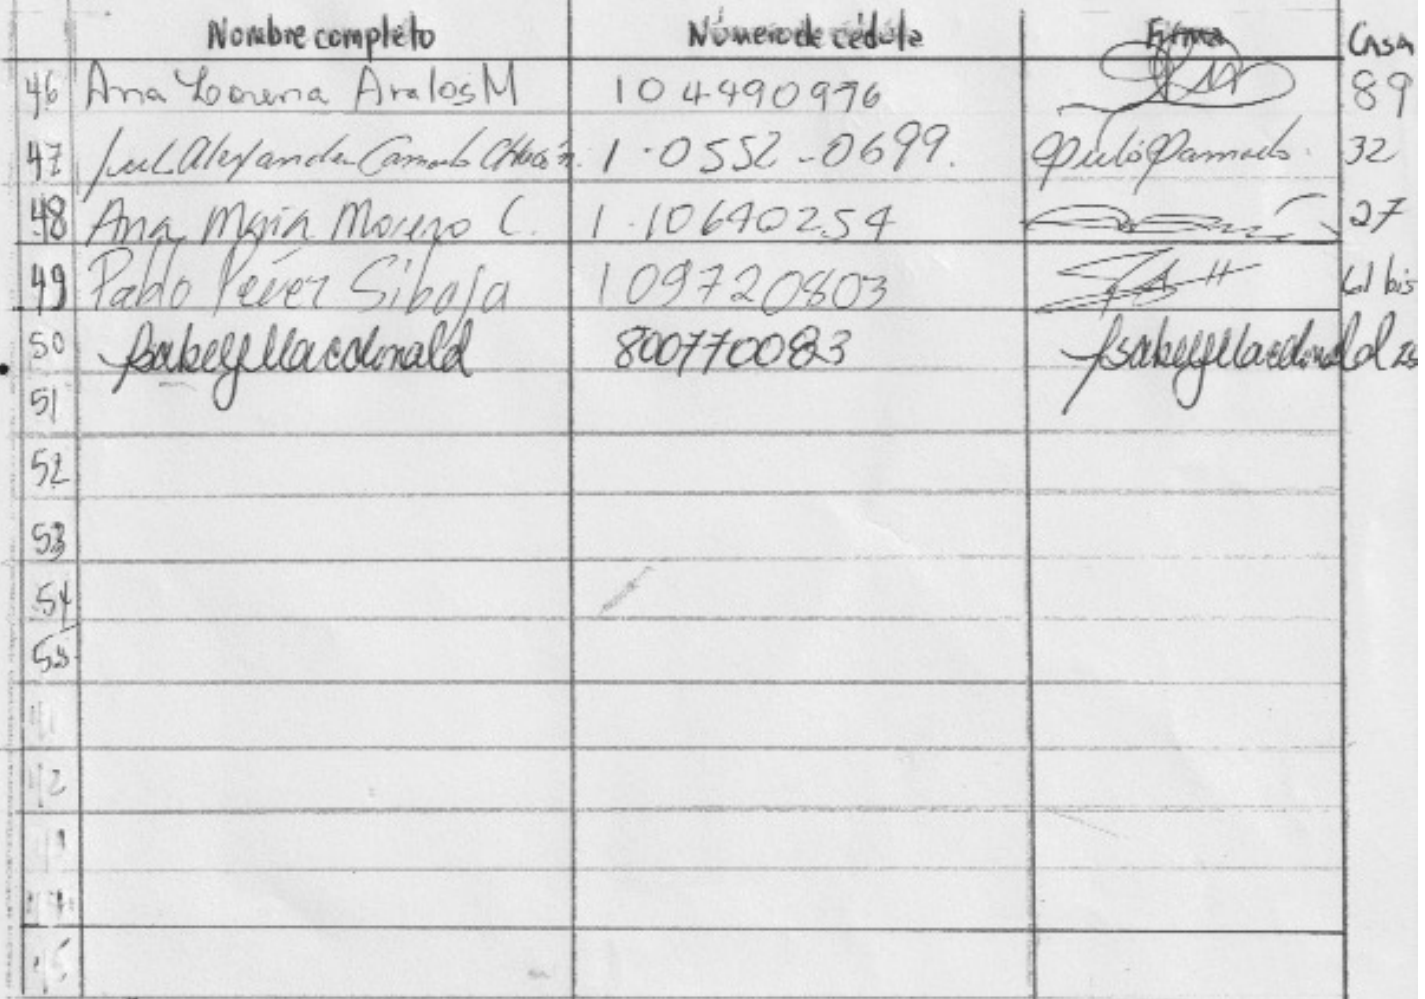 Nombre completo Número de cédula Firma Casa
46 Ana Lorena Avalos M 104490976 89
47 Alexander 1-0552-0699. 32
48 Ana María Moreno C. 1-10640254 27
49 Pablo Pérez Siboja 109720803 61 bis
50 Isabey Macdonald 800770083 Isabey Macdonald
51
52
53
54
55
42
44
45